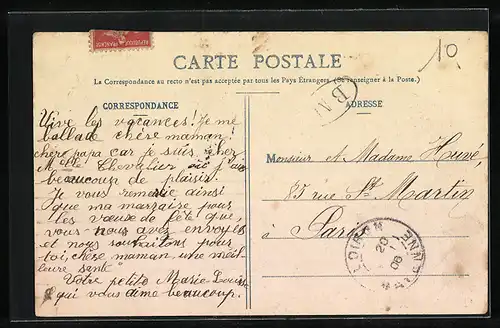 RÉPUBLIQUE FRANÇAISE
CARTE POSTALE
10
La Correspondance au recto n'est pas acceptée par tous les Pays Étrangers. (Se renseigner à la Poste.)
CORRESPONDANCE
ADRESSE
Vive les vacances! Je me
ballade chère maman!
chère papa car je suis chez
M. Chevalier où j'ai
beaucoup de plaisir.
Je vous remercie ainsi
que ma marraine pour
les vœux de fête que,
vous nous avez envoyés
et nous souhaitons pour
toi, chère maman une meil-
leure santé
Votre petite Marie-Louise
qui vous aime beaucoup.
Monsieur et Madame Huvé,
85 rue St Martin
à Paris
20
08